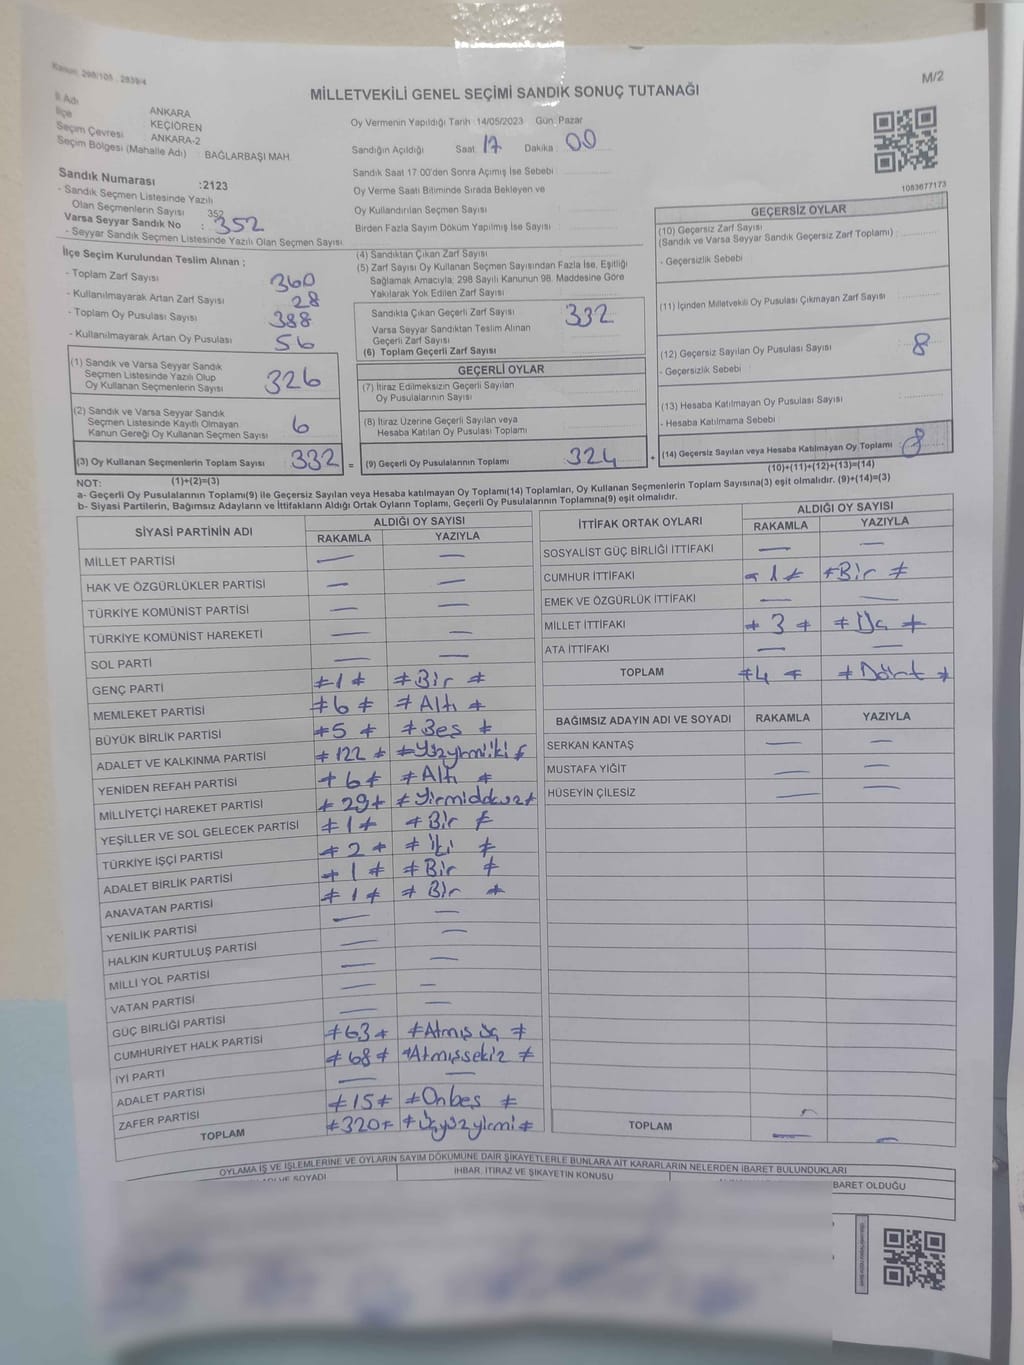 Kanun: 298/105 - 2839/4
M/2
MİLLETVEKİLİ GENEL SEÇİMİ SANDIK SONUÇ TUTANAĞI
İl Adı ANKARA
İlçe KEÇİÖREN
Seçim Çevresi ANKARA-2
Seçim Bölgesi (Mahalle Adı) : BAĞLARBAŞI MAH.
Oy Vermenin Yapıldığı Tarih :14/05/2023 Gün: Pazar
Sandığın Açıldığı Saat: 17 Dakika: 00
Sandık Saat 17.00'den Sonra Açımış İse Sebebi
Oy Verme Saati Bitiminde Sırada Bekleyen ve
Oy Kullandırılan Seçmen Sayısı
Birden Fazla Sayım Döküm Yapılmış İse Sayısı
1083677173
Sandık Numarası :2123
- Sandık Seçmen Listesinde Yazılı
Olan Seçmenlerin Sayısı 352
Varsa Seyyar Sandık No : 352
- Seyyar Sandık Seçmen Listesinde Yazılı Olan Seçmen Sayısı
İlçe Seçim Kurulundan Teslim Alınan :
- Toplam Zarf Sayısı 360
- Kullanılmayarak Artan Zarf Sayısı 28
- Toplam Oy Pusulası Sayısı 388
- Kullanılmayarak Artan Oy Pusulası 56
(1) Sandık ve Varsa Seyyar Sandık
Seçmen Listesinde Yazılı Olup
Oy Kullanan Seçmenlerin Sayısı 326
(2) Sandık ve Varsa Seyyar Sandık
Seçmen Listesinde Kayıtlı Olmayan
Kanun Gereği Oy Kullanan Seçmen Sayısı 6
(3) Oy Kullanan Seçmenlerin Toplam Sayısı 332 =
(1)+(2)=(3)
(4) Sandıktan Çıkan Zarf Sayısı
(5) Zarf Sayısı Oy Kullanan Seçmen Sayısından Fazla İse, Eşitliği
Sağlamak Amacıyla; 298 Sayılı Kanunun 98. Maddesine Göre
Yakılarak Yok Edilen Zarf Sayısı
Sandıkta Çıkan Geçerli Zarf Sayısı 332
Varsa Seyyar Sandıktan Teslim Alınan
Geçerli Zarf Sayısı
(6) Toplam Geçerli Zarf Sayısı
GEÇERLİ OYLAR
(7) İtiraz Edilmeksizin Geçerli Sayılan
Oy Pusulalarının Sayısı
(8) İtiraz Üzerine Geçerli Sayılan veya
Hesaba Katılan Oy Pusulası Toplamı
(9) Geçerli Oy Pusulalarının Toplamı 324 +
GEÇERSİZ OYLAR
(10) Geçersiz Zarf Sayısı
(Sandık ve Varsa Seyyar Sandık Geçersiz Zarf Toplamı)
- Geçersizlik Sebebi
(11) İçinden Milletvekili Oy Pusulası Çıkmayan Zarf Sayısı
(12) Geçersiz Sayılan Oy Pusulası Sayısı 8
- Geçersizlik Sebebi
(13) Hesaba Katılmayan Oy Pusulası Sayısı
- Hesaba Katılmama Sebebi
(14) Geçersiz Sayılan veya Hesaba Katılmayan Oy Toplamı 8
(10)+(11)+(12)+(13)=(14)
NOT:
a- Geçerli Oy Pusulalarının Toplamı(9) ile Geçersiz Sayılan veya Hesaba katılmayan Oy Toplamı(14) Toplamları, Oy Kullanan Seçmenlerin Toplam Sayısına(3) eşit olmalıdır. (9)+(14)=(3)
b- Siyasi Partilerin, Bağımsız Adayların ve İttifakların Aldığı Ortak Oyların Toplamı, Geçerli Oy Pusulalarının Toplamına(9) eşit olmalıdır.
SİYASİ PARTİNİN ADI ALDIĞI OY SAYISI
RAKAMLA YAZIYLA
MİLLET PARTİSİ — —
HAK VE ÖZGÜRLÜKLER PARTİSİ — —
TÜRKİYE KOMÜNİST PARTİSİ — —
TÜRKİYE KOMÜNİST HAREKETİ — —
SOL PARTİ — —
GENÇ PARTİ ≠1≠ ≠Bir≠
MEMLEKET PARTİSİ ≠6≠ ≠Altı≠
BÜYÜK BİRLİK PARTİSİ ≠5≠ ≠Beş≠
ADALET VE KALKINMA PARTİSİ ≠122≠ ≠Yüzyirmiiki≠
YENİDEN REFAH PARTİSİ ≠6≠ ≠Altı≠
MİLLİYETÇİ HAREKET PARTİSİ ≠29≠ ≠Yirmidokuz≠
YEŞİLLER VE SOL GELECEK PARTİSİ ≠1≠ ≠Bir≠
TÜRKİYE İŞÇİ PARTİSİ ≠2≠ ≠İki≠
ADALET BİRLİK PARTİSİ ≠1≠ ≠Bir≠
ANAVATAN PARTİSİ ≠1≠ ≠Bir≠
YENİLİK PARTİSİ — —
HALKIN KURTULUŞ PARTİSİ — —
MİLLİ YOL PARTİSİ — —
VATAN PARTİSİ — —
GÜÇ BİRLİĞİ PARTİSİ — —
CUMHURİYET HALK PARTİSİ ≠63≠ ≠Atmış üç≠
İYİ PARTİ ≠68≠ ≠Atmışsekiz≠
ADALET PARTİSİ — —
ZAFER PARTİSİ ≠15≠ ≠Onbeş≠
TOPLAM ≠320≠ ≠Üçyüzyirmi≠
İTTİFAK ORTAK OYLARI ALDIĞI OY SAYISI
RAKAMLA YAZIYLA
SOSYALİST GÜÇ BİRLİĞİ İTTİFAKI — —
CUMHUR İTTİFAKI ≠1≠ ≠Bir≠
EMEK VE ÖZGÜRLÜK İTTİFAKI — —
MİLLET İTTİFAKI ≠3≠ ≠Üç≠
ATA İTTİFAKI — —
TOPLAM ≠4≠ ≠Dört≠
BAĞIMSIZ ADAYIN ADI VE SOYADI RAKAMLA YAZIYLA
SERKAN KANTAŞ — —
MUSTAFA YİĞİT — —
HÜSEYİN ÇİLESİZ — —
TOPLAM — —
OYLAMA İŞ VE İŞLEMLERİNE VE OYLARIN SAYIM DÖKÜMÜNE DAİR ŞİKAYETLERLE BUNLARA AİT KARARLARIN NELERDEN İBARET BULUNDUKLARI
ADI VE SOYADI İHBAR, İTİRAZ VE ŞİKAYETİN KONUSU BARET OLDUĞU